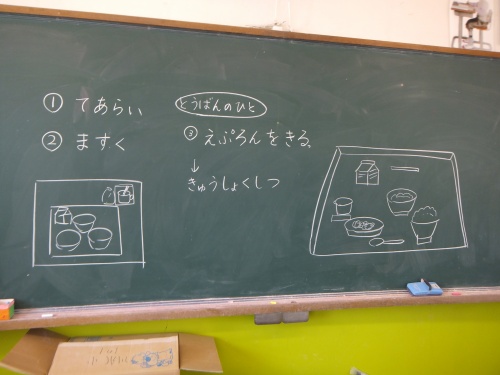 ① てあらい
② ますく
とうばんのひと
③ えぷろんをきる。
↓
きゅうしょくしつ